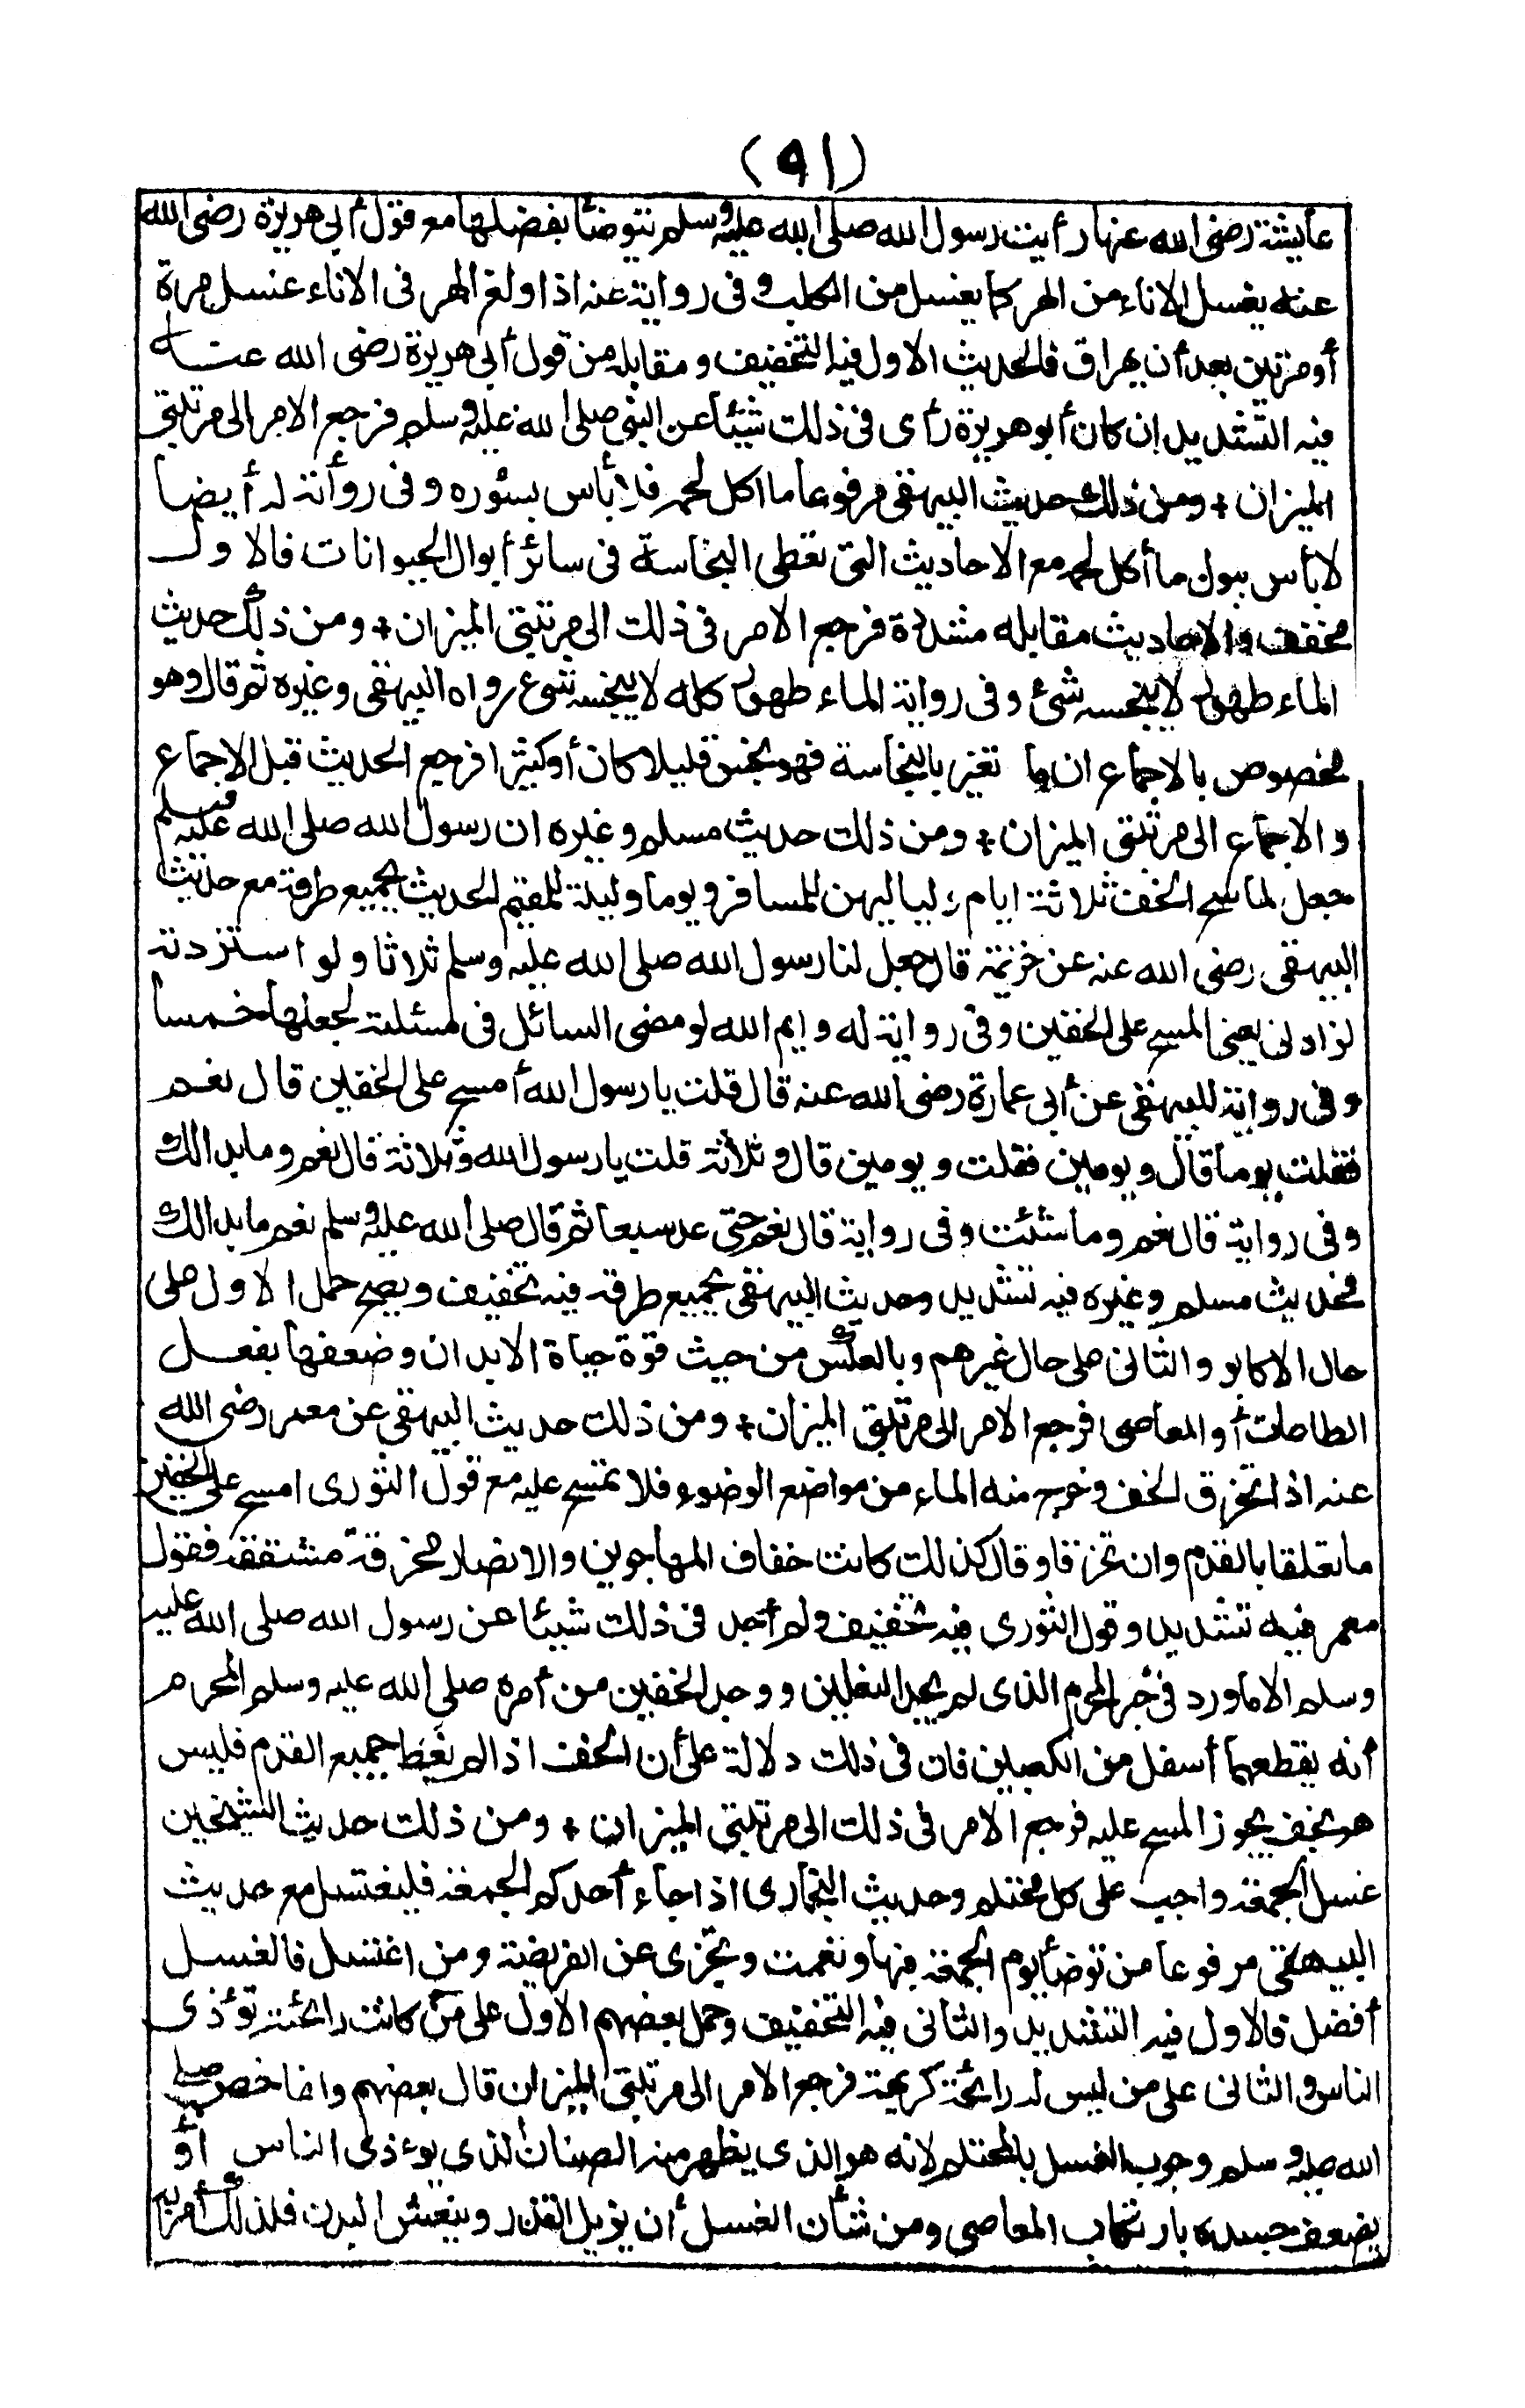 (٩١)
عايشة رضى الله عنها رأيت رسول الله صلى الله عليه وسلم يتوضأ بفضلها مع قول أبى هريرة رضى الله
عنه يغسل الاناء من الهر كما يغسل من الكلب وفى رواية عنه اذا ولغ الهر فى الاناء غسل مرة
أو مرتين بعد أن يهراق فالحديث الاول فيه التخفيف ومقابله من قول أبى هريرة رضى الله عنه
فيه التشديد إن كان أبو هريرة رأى فى ذلك شيئا عن النبى صلى الله عليه وسلم فرجع الامر الى مرتبتى
الميزان + ومن ذلك حديث البيهقى مرفوعا ما اكل لحمه فلا بأس بسئوره وفى رواية له أيضا
لا بأس ببول ما أكل لحمه مع الاحاديث التى تعطى النجاسة فى سائر أبوال الحيوانات فالاول
مخفف والاحاديث مقابله مشددة فرجع الامر فى ذلك الى مرتبتى الميزان + ومن ذلك حديث
الماء طهور لا ينجسه شئ وفى رواية الماء طهور كله لا ينجسه شئ رواه البيهقى وغيره ثم قال وهو
مخصوص بالاجماع ان ما تغير بالنجاسة فهو نجس قليلا كان أو كثيرا فرجع الحديث قبل الاجماع
والاجماع الى مرتبتى الميزان + ومن ذلك حديث مسلم وغيره ان رسول الله صلى الله عليه وسلم
جعل لماسح الخف ثلاثة ايام ولياليهن للمسافر ويوما وليلة للمقيم الحديث بجميع طرقه مع حديث
البيهقى رضى الله عنه عن خزيمة قال جعل لنا رسول الله صلى الله عليه وسلم ثلاثا ولو استزدته
لزادنى يعنى المسح على الخفين وفى رواية له وايم الله لو مضى السائل فى مسئلته لجعلها خمسا
وفى رواية للبيهقى عن أبى عمارة رضى الله عنه قال قلت يا رسول الله أمسح على الخفين قال نعم
فقلت يوما قال ويومين فقلت ويومين قال وثلاثة قلت يا رسول الله وثلاثة قال نعم وما بدا لك
وفى رواية قال نعم وما شئت وفى رواية قال نعم حتى عد سبعا ثم قال صلى الله عليه وسلم نعم ما بدا لك
فحديث مسلم وغيره فيه تشديد وحديث البيهقى بجميع طرقه فيه تخفيف ويصح حمل الاول على
حال الاكابر والثانى على حال غيرهم وبالعكس من حيث قوة حياة الابدان وضعفها بفعل
الطاعات أو المعاصى فرجع الامر الى مرتبتى الميزان + ومن ذلك حديث البيهقى عن معمر رضى الله
عنه اذا تخرق الخف وخرج منه الماء من مواضع الوضوء فلا تمسح عليه مع قول الثورى امسح على الخفين
ما تعلقا بالقدم وان تخرقا وقال كذلك كانت خفاف المهاجرين والانصار مخرقة مشققة فقول
معمر فيه تشديد وقول الثورى فيه تخفيف ولم أجد فى ذلك شيئا عن رسول الله صلى الله عليه
وسلم الا ما ورد فى خبر المحرم الذى لم يجد النعلين ووجد الخفين من أمره صلى الله عليه وسلم المحرم
أنه يقطعهما أسفل من الكعبين فان فى ذلك دلالة على أن الخف اذا لم يغط جميع القدم فليس
هو بخف يجوز المسح عليه فرجع الامر فى ذلك الى مرتبتى الميزان + ومن ذلك حديث الشيخين
غسل الجمعة واجب على كل محتلم وحديث البخارى اذا جاء أحدكم الجمعة فليغتسل مع حديث
البيهقى مرفوعا من توضأ يوم الجمعة فبها ونعمت وتجزى عن الفريضة ومن اغتسل فالغسل
أفضل فالاول فيه التشديد والثانى فيه التخفيف وحمل بعضهم الاول على من كانت رائحته تؤذى
الناس والثانى على من ليس له رائحة كريهة فرجع الامر الى مرتبتى الميزان قال بعضهم وانما خص صلى
الله عليه وسلم وجوب الغسل بالمحتلم لانه هو الذى يظهر منه الصنان الذى يوءذى الناس أو
يضعف جسده بارتكاب المعاصى ومن شأن الغسل أن يزيل القذر وينعش البدن فلذلك أمر به